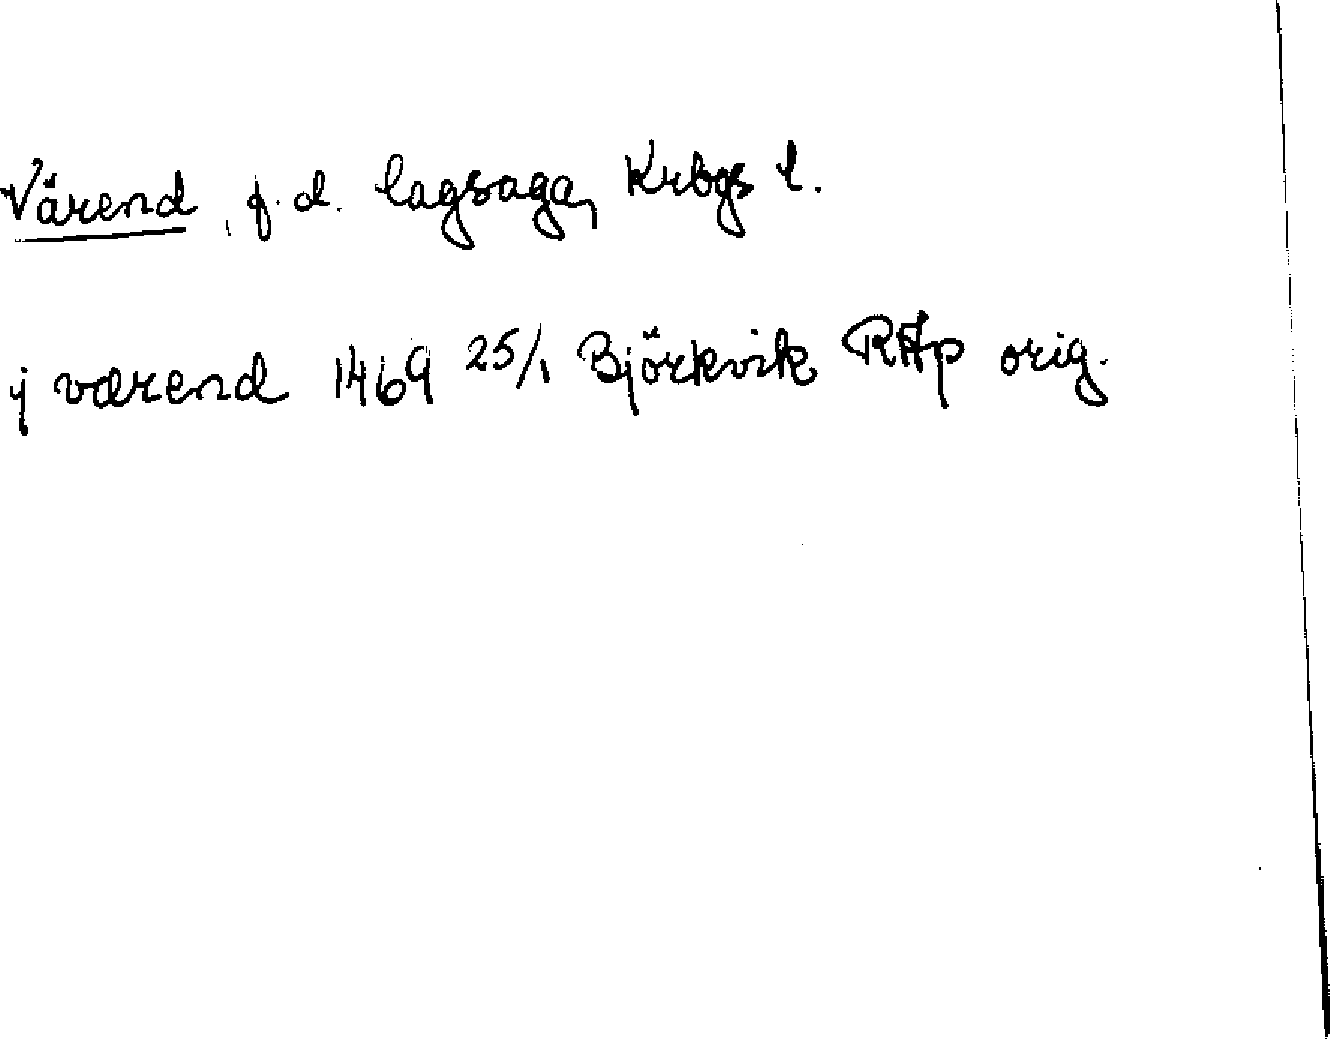 Värend, f.d. lagsaga, Krbgs l.
j værend 1469 25/1 Björkvik RAp orig.